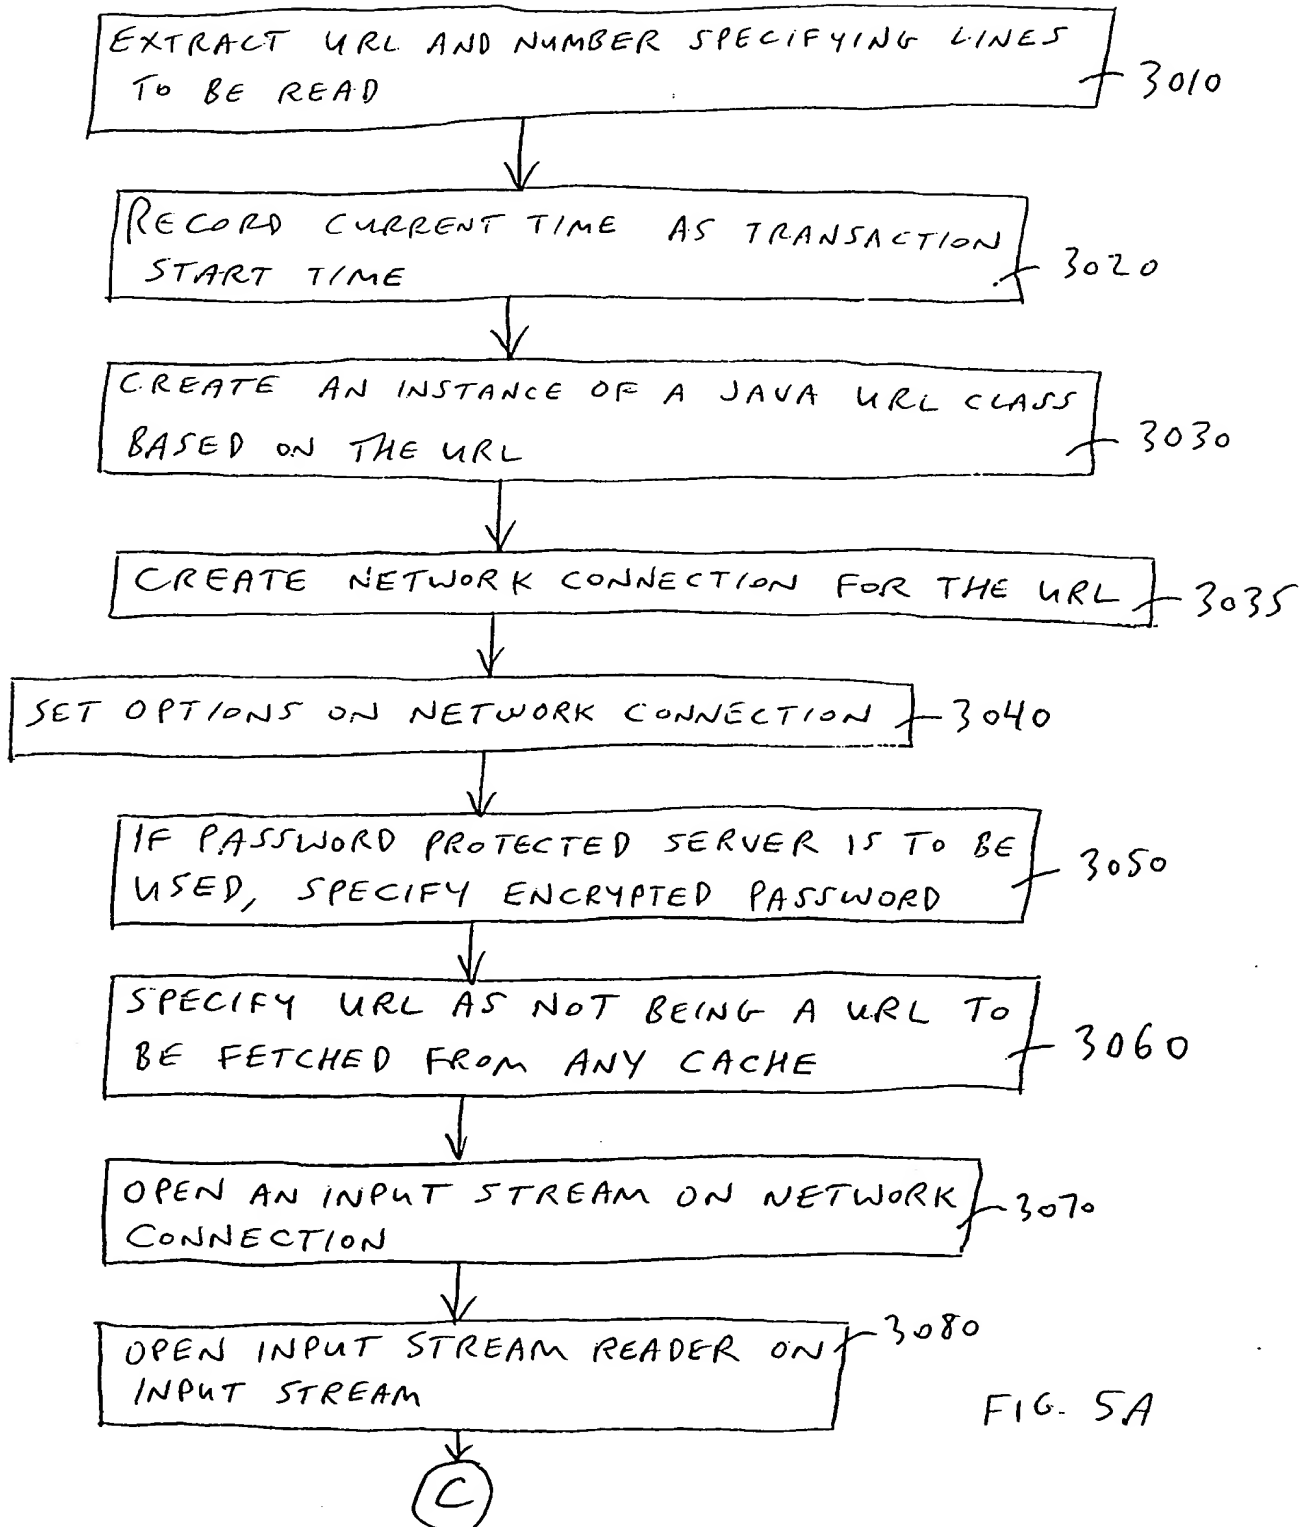 EXTRACT URL AND NUMBER SPECIFYING LINES
TO BE READ
3010
RECORD CURRENT TIME AS TRANSACTION
START TIME
3020
CREATE AN INSTANCE OF A JAVA URL CLASS
BASED ON THE URL
3030
CREATE NETWORK CONNECTION FOR THE URL
3035
SET OPTIONS ON NETWORK CONNECTION
3040
IF PASSWORD PROTECTED SERVER IS TO BE
USED, SPECIFY ENCRYPTED PASSWORD
3050
SPECIFY URL AS NOT BEING A URL TO
BE FETCHED FROM ANY CACHE
3060
OPEN AN INPUT STREAM ON NETWORK
CONNECTION
3070
OPEN INPUT STREAM READER ON
INPUT STREAM
3080
FIG. 5A
C